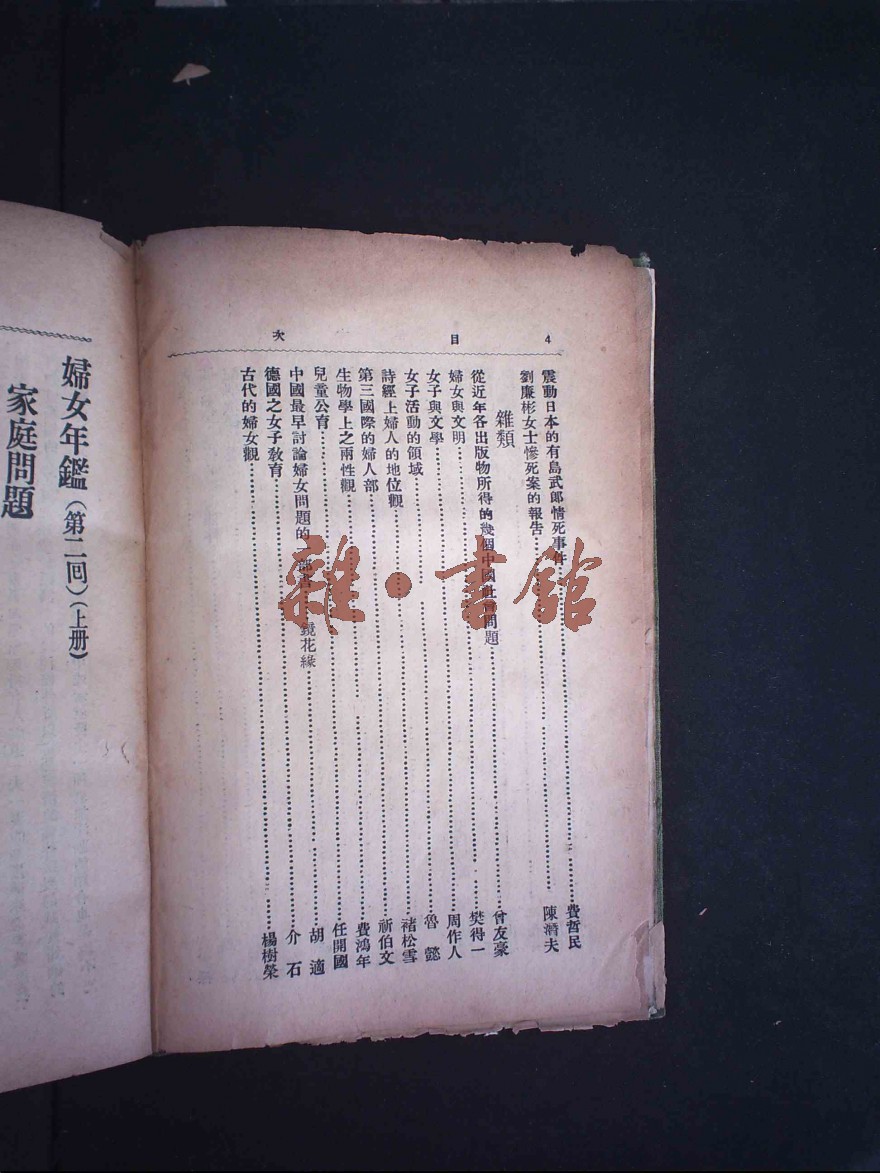 4 目 次
震動日本的有島武郎情死事件……費哲民
劉廉彬女士慘死案的報告……陳潛夫
雜類
從近年各出版物所得的幾個中國社會問題……曾友豪
婦女與文明……樊得一
女子與文學……周作人
女子活動的領域……魯 懿
詩經上婦人的地位觀……褚松雪
第三國際的婦人部……祈伯文
生物學上之兩性觀……費鴻年
兒童公育……任開國
中國最早討論婦女問題的一部書 鏡花緣……胡 適
德國之女子教育……介 石
古代的婦女觀……楊樹榮
婦女年鑑（第二回）（上册）
家庭問題
雜·書館